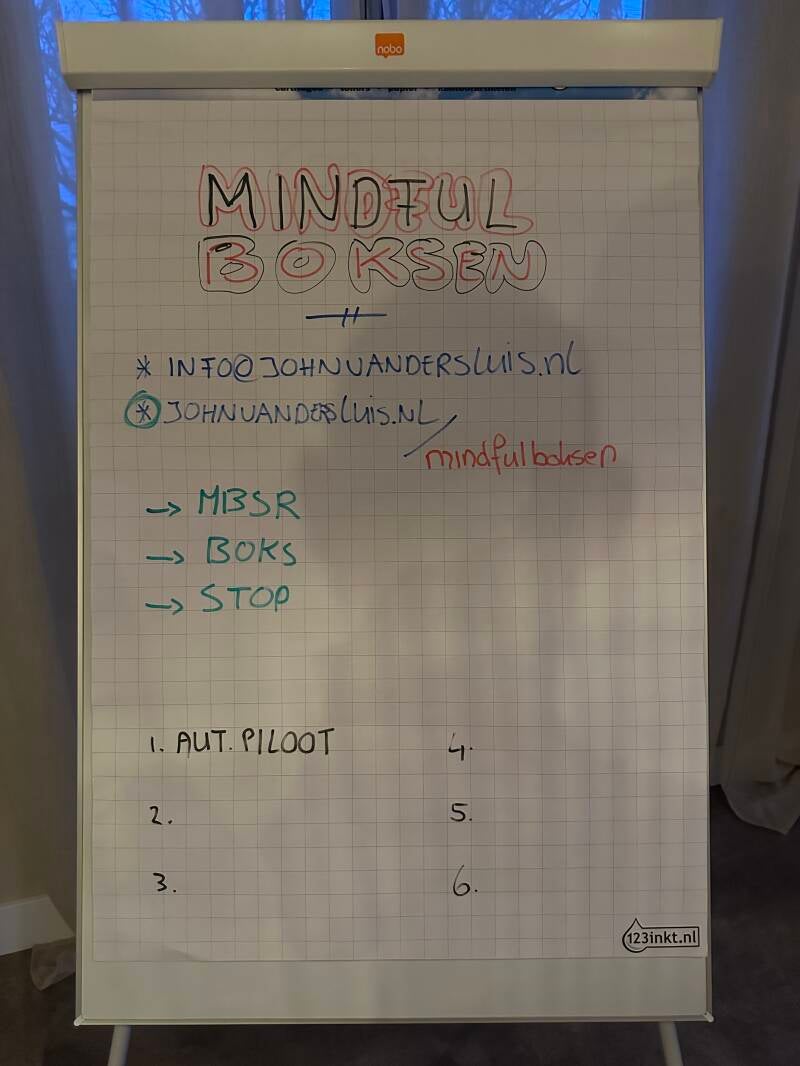 nobo
MINDFUL
BOKSEN
* INFO@JOHNVANDERSLUIS.NL
* JOHNVANDERSLUIS.NL/
mindfulboksen
→ MBSR
→ BOKS
→ STOP
1. AUT. PILOOT
4.
2.
5.
3.
6.
123inkt.nl